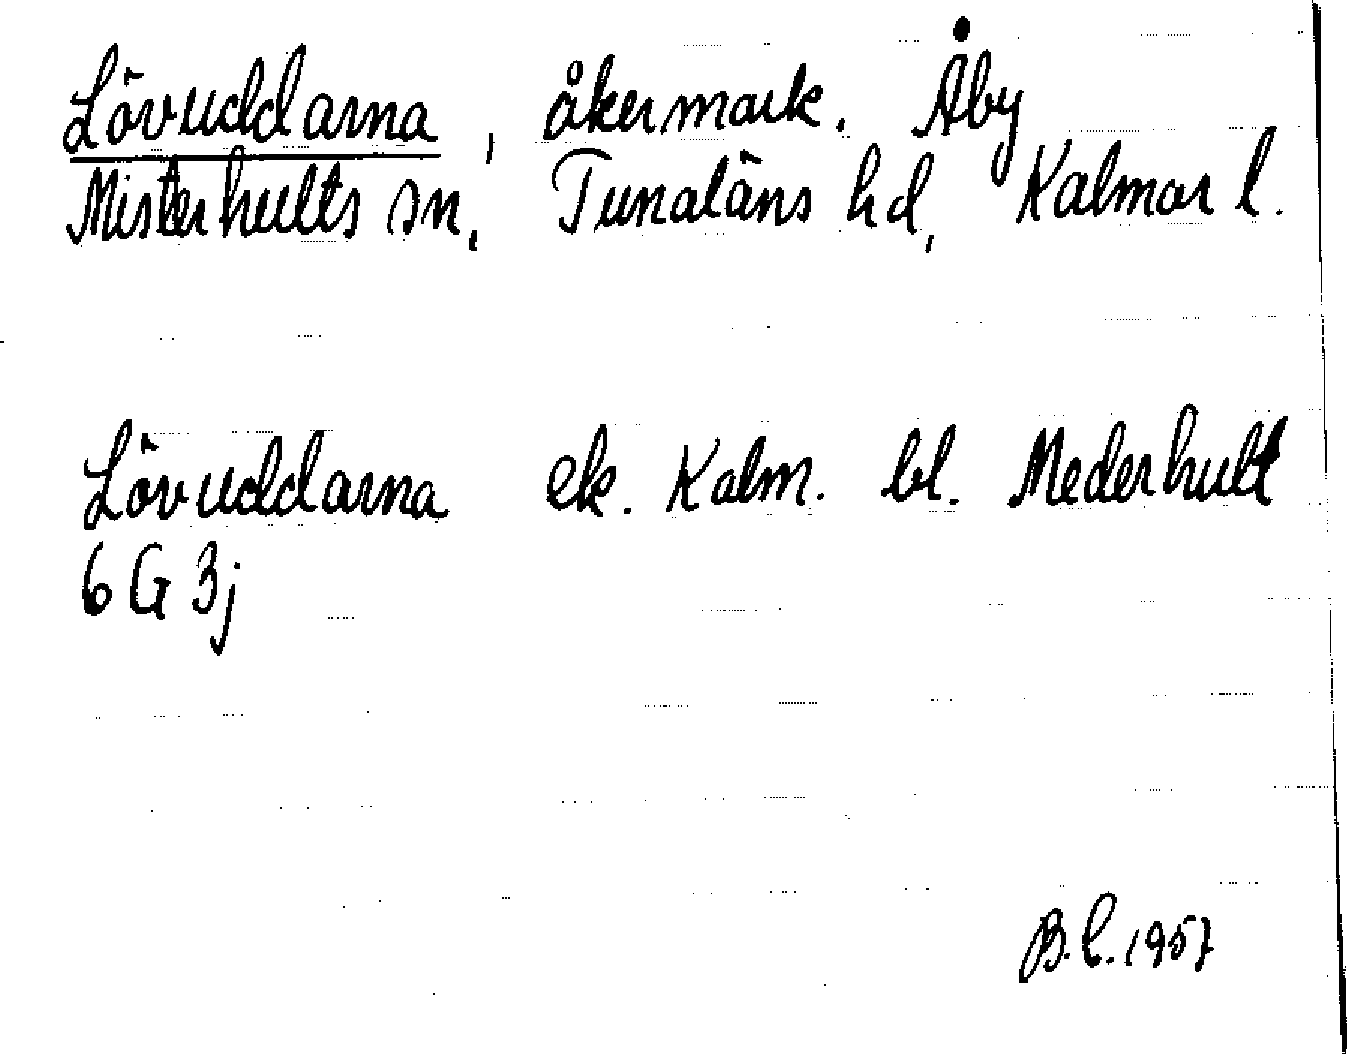 Lövuddarna, åkermark. Åby
Misterhults sn, Tunaläns hd, Kalmar l.
Lövuddarna ek. Kalm. bl. Mederhult
6 G 3j
B.C. 1957